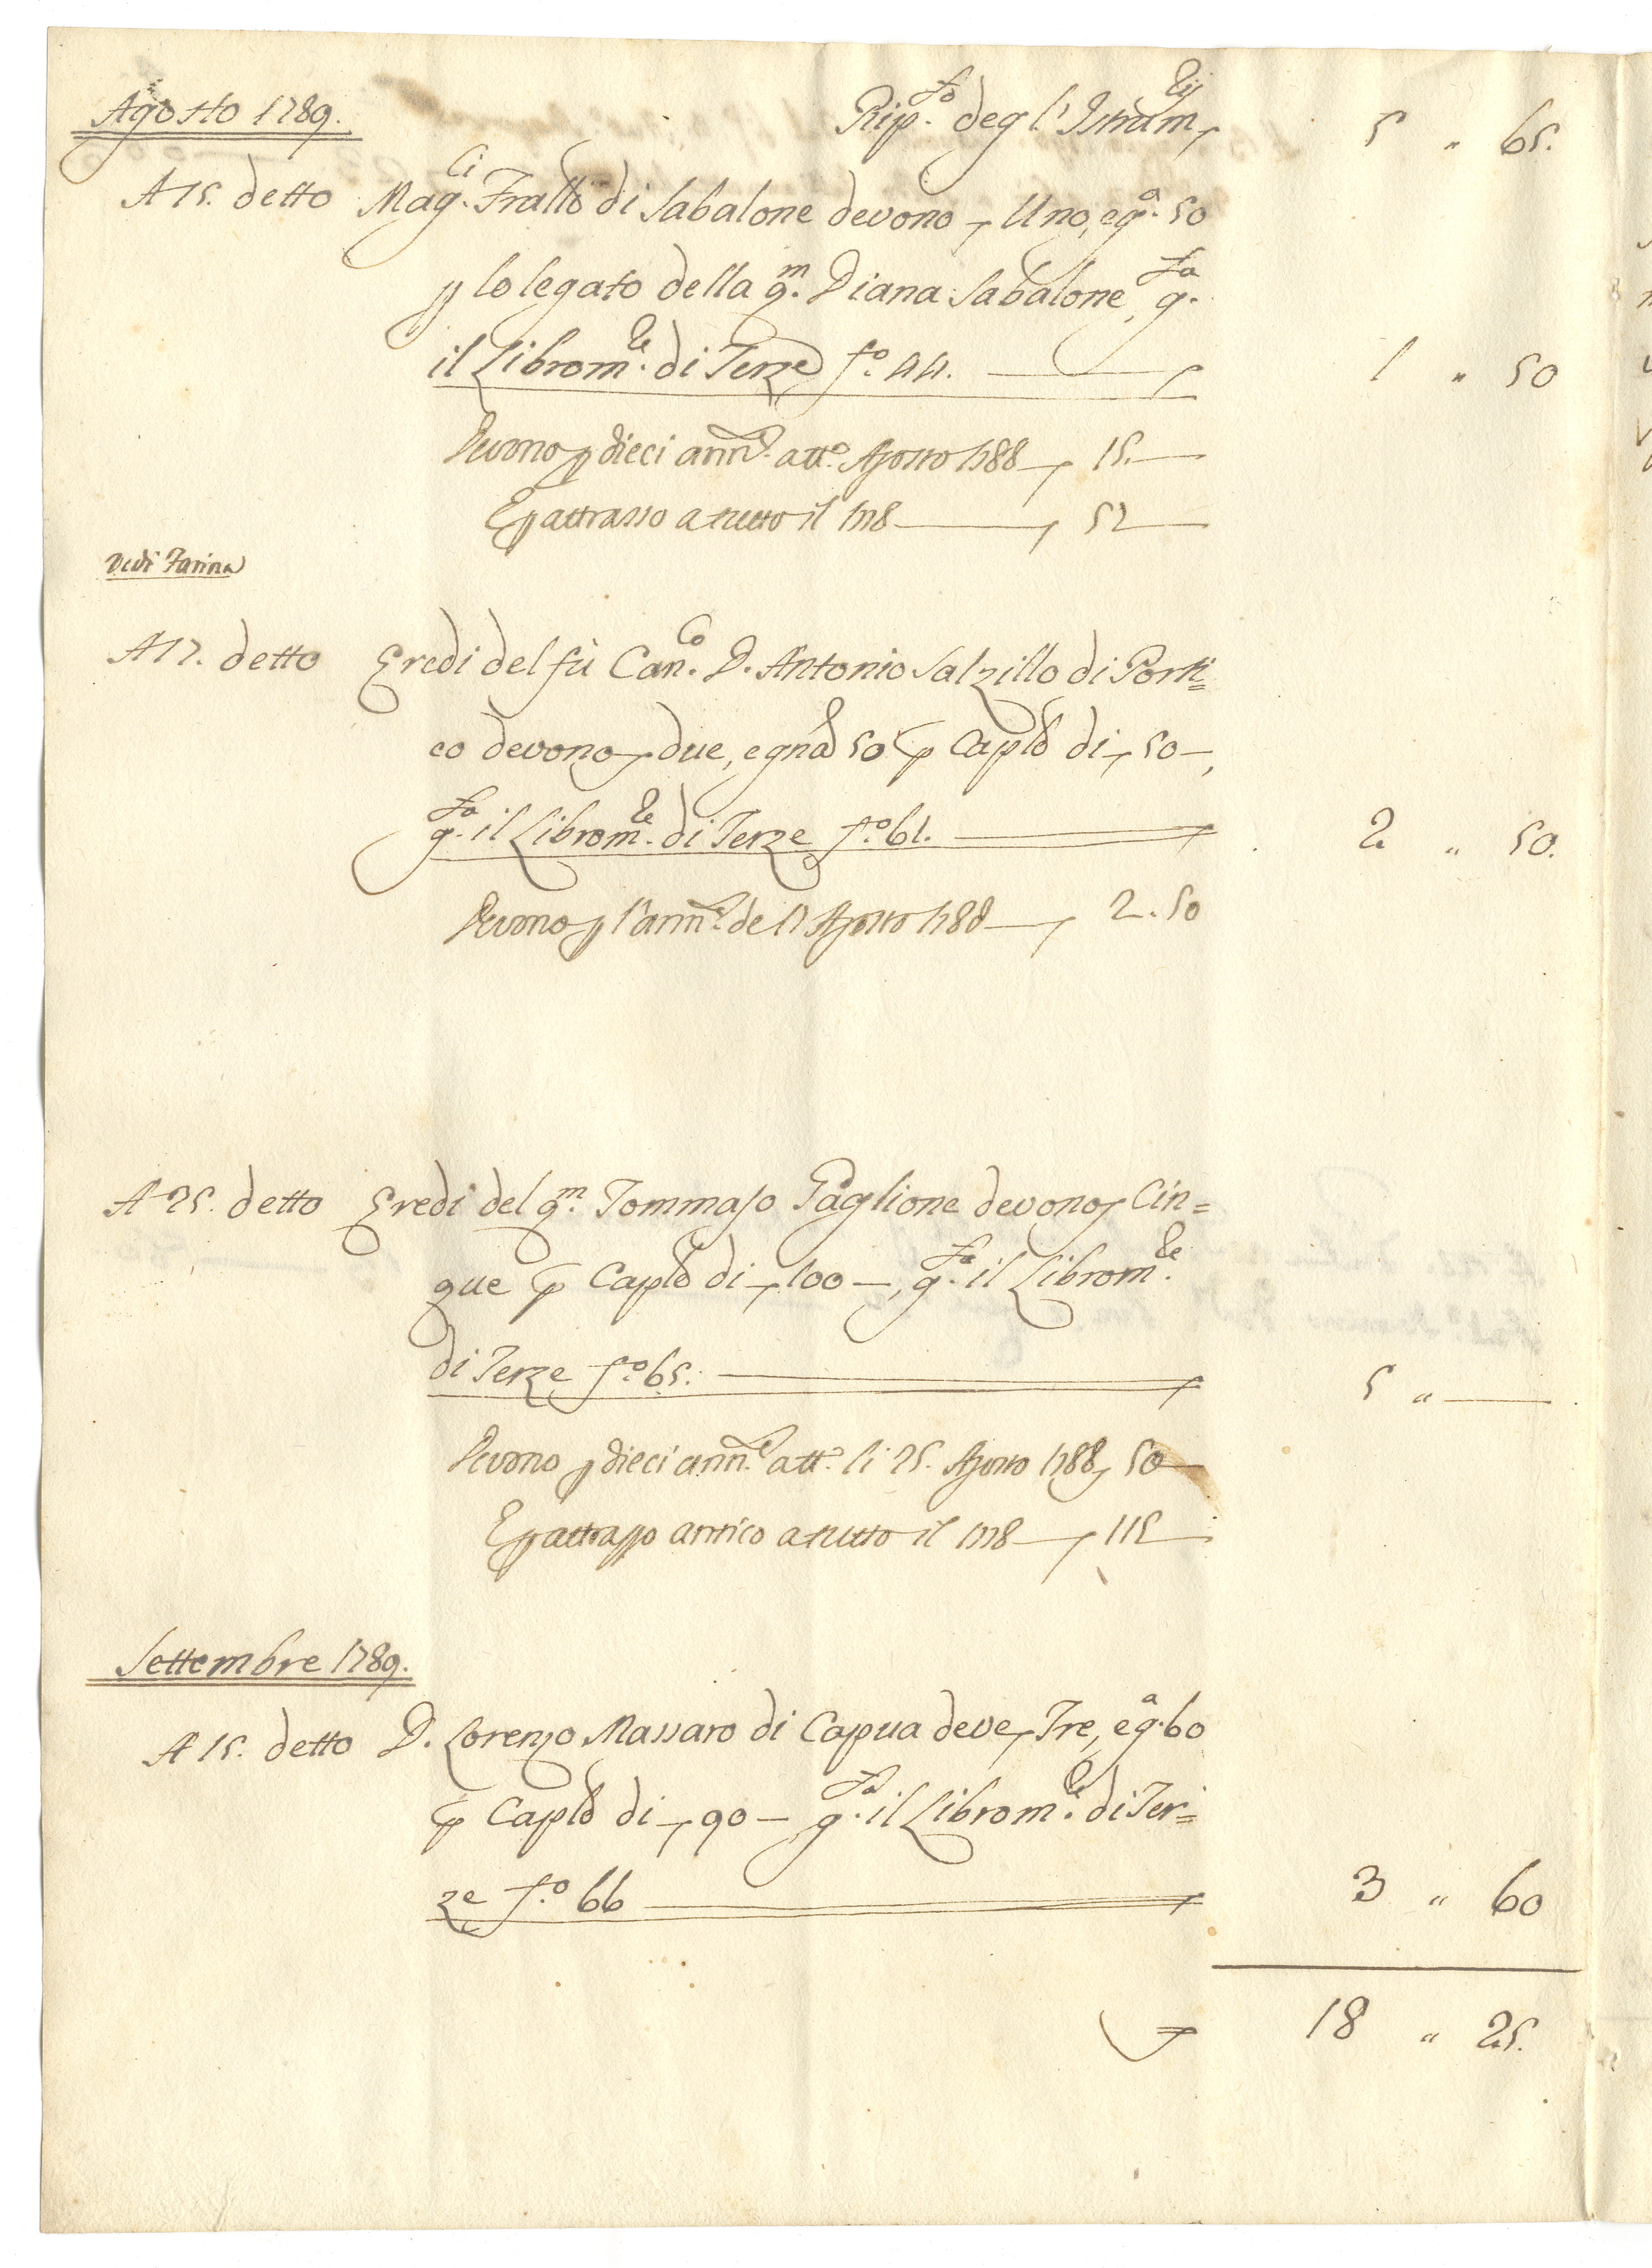 Agosto 1789. Rip.to degl'Istrum.ti 5 " 65.
A 15. detto Mag.ci Fratlli di Sabalone devono Uno, e g.a 50
p lo legato della q.m Diana Sabalone, g.ta
il Librom.le di Terze f.o 44. 1 " 50
Devono p dieci ann.e att.o Agosto 1788 15.
E p attrasso a tutto il 1778 52
Vedi Farina
A 17. detto Eredi del fù Can.co D. Antonio Salzillo di Porti=
co devono due, e gna 50 p Caplê di 50,
g.ta il Librom.le di Terze f.o 61. 2 " 50.
Devono p l'ann.e de 17 Agosto 1788 2.50
A 25. detto Eredi del q.m Tommaso Paglione devono Cin=
que p Caplê di 100, g.ta il Librom.le
di Terze f.o 65. 5 "
Devono p dieci ann.e att.o li 25. Agosto 1788 50
E p attrasso antico a tutto il 1778 115
Settembre 1789.
A 15. detto D. Lorenzo Massaro di Capua deve Tre, e g.a 60
p Caplê di 90 g.ta il Librom.le di Ter=
ze f.o 66 3 " 60
18 " 25.